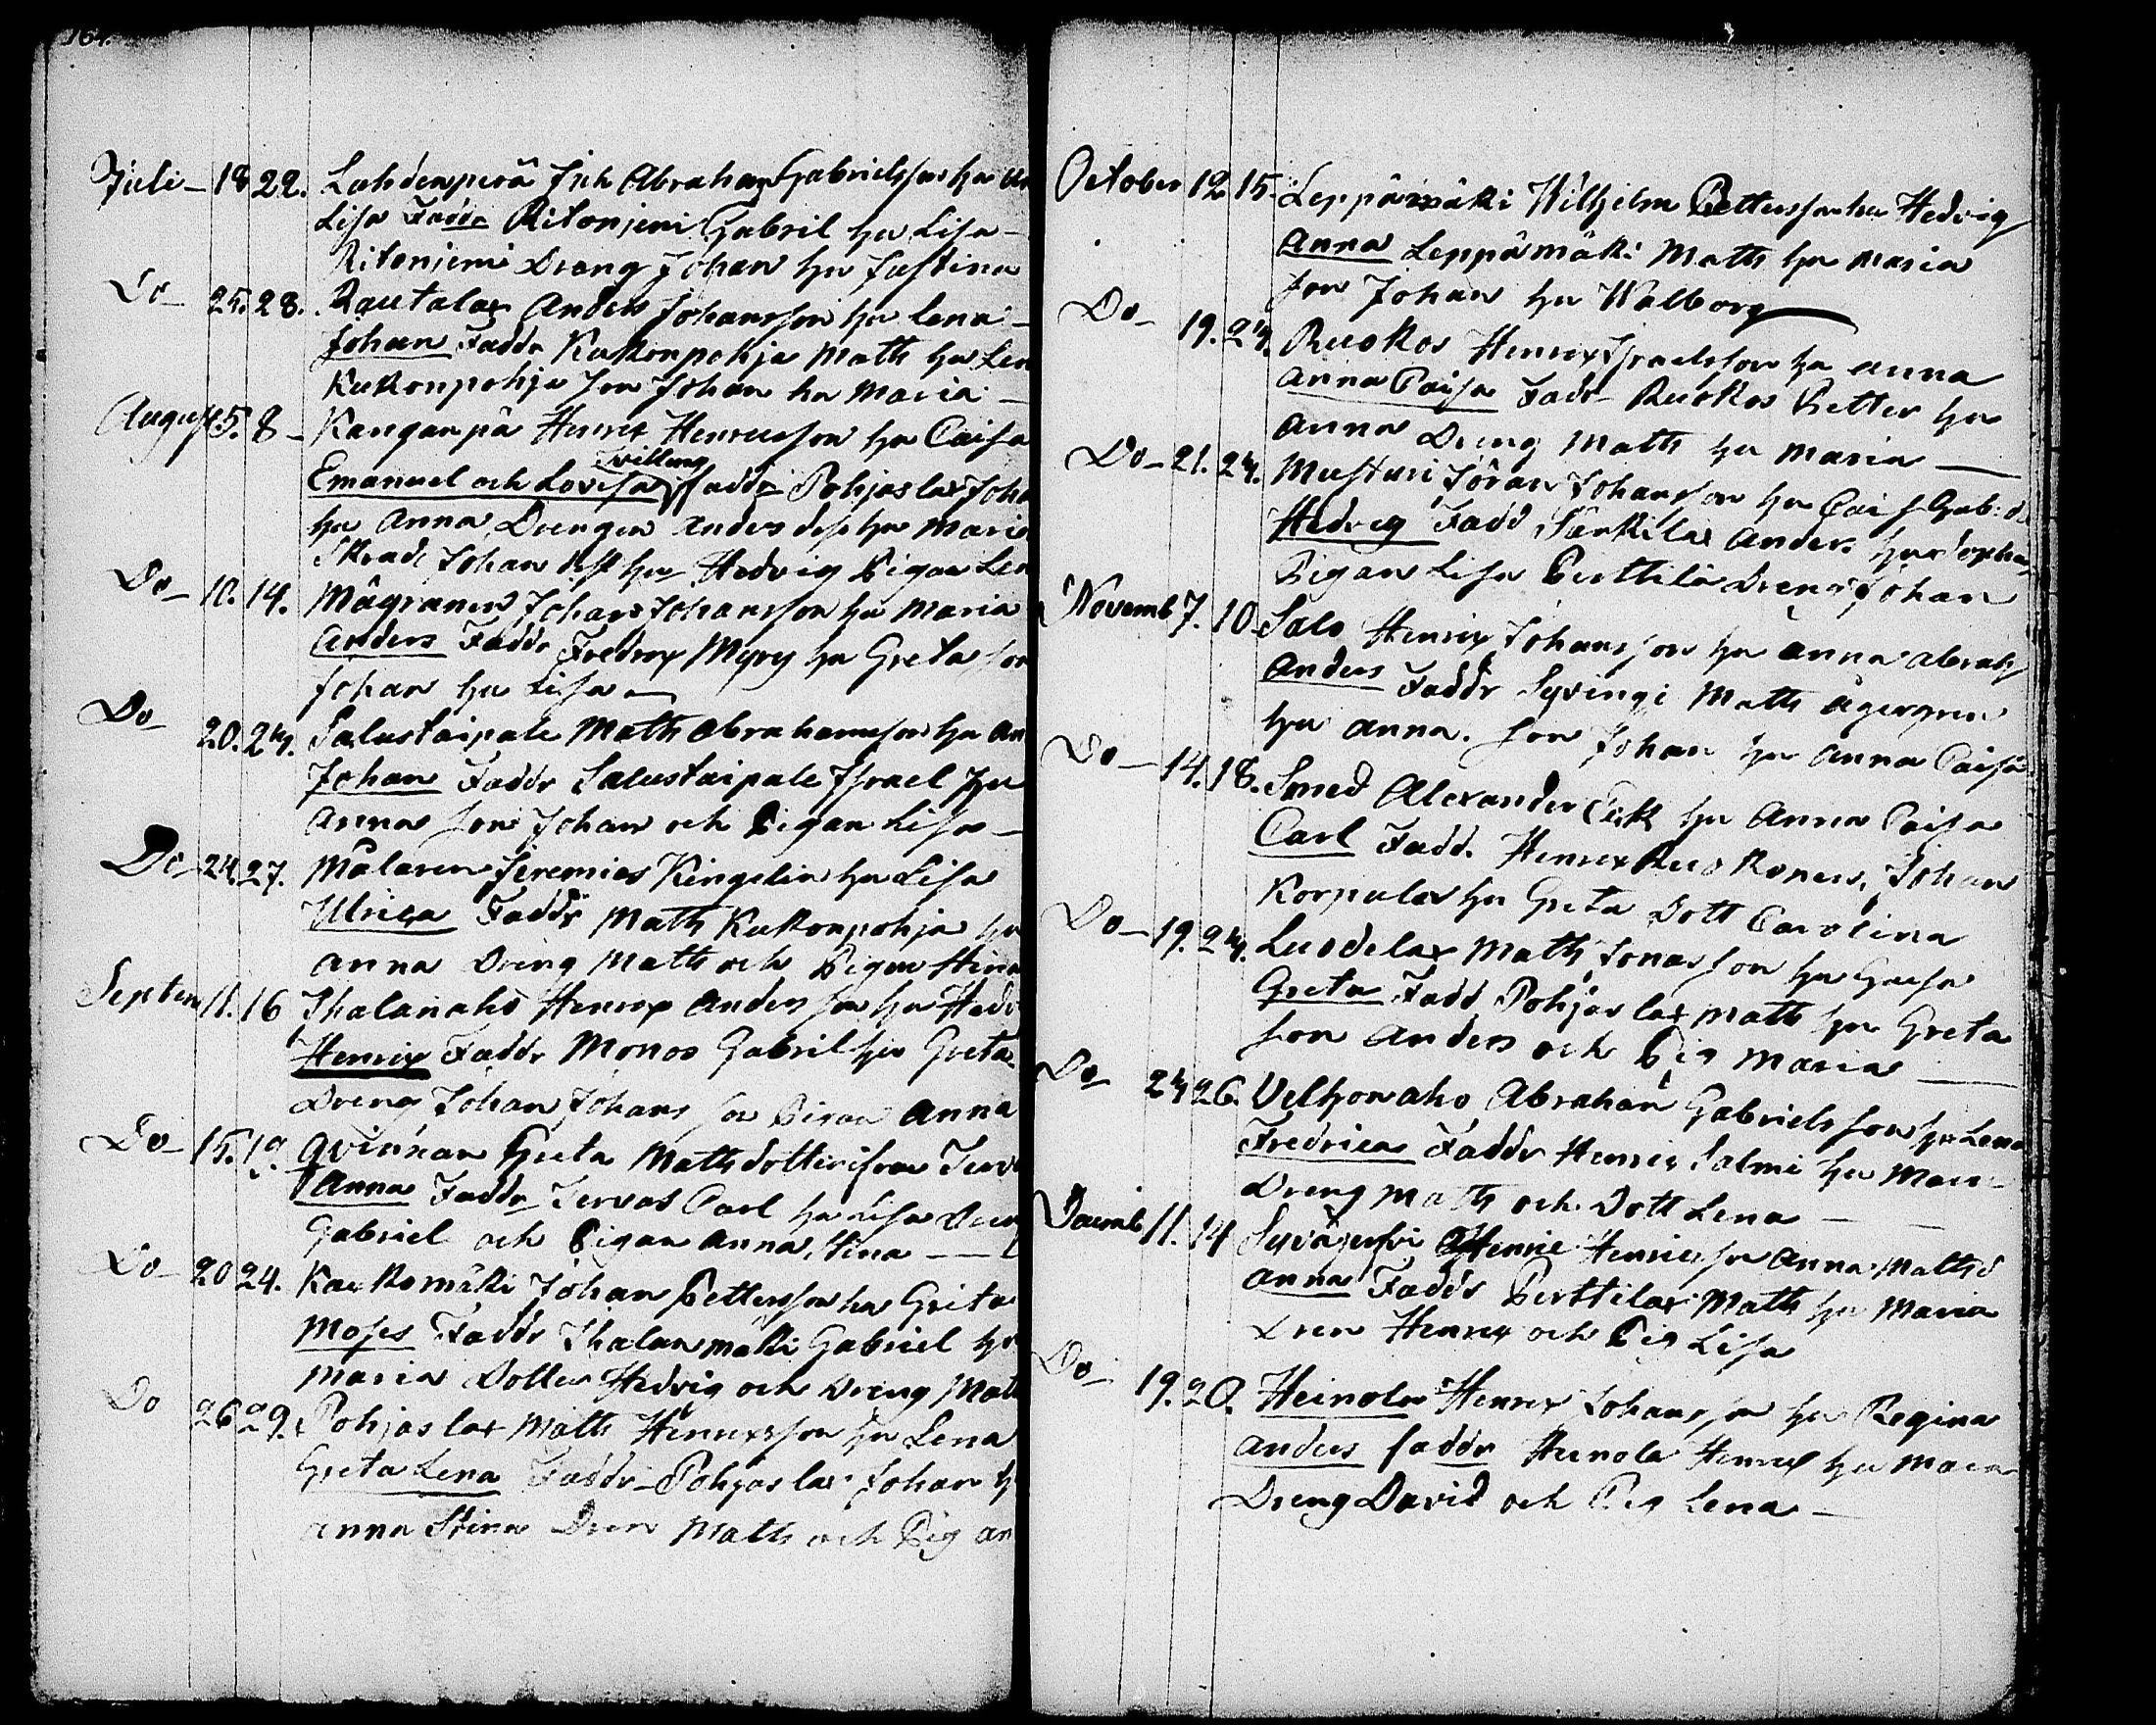 164.
Juli – 18 22. Lahdenperä Abraham Gabrielsson hu
Lisa Faddr Ritoniemi Gabriel hu Lisa –
Ritoniemi Dreng Johan hu Justina
Do – 25. 28. Rautalax Anders Johansson hu Lena –
Johan Faddr Kukonpohja Matts hu Len
Kukonpohja Son Johan hu Maria –
August 5. 8 – Kanganpä Henrix Henricsson hu Caisa
Tvilling
Emanuel och Lovisa Faddr Pohjaslax Joha
hu Anna Drengen Anders hu Maria
Johan hu Hedvig Pigan Len
Do – 10. 14. Mågranen Johan Johansson hu Maria
Anders Faddr Fredrix Myry hu Greta Son
Johan hu Lisa –
Do 20. 24. Salustaipale Matts Abrahamsson hu An
Johan Faddr Salustaipale Israel hu
Anna Son Johan och Pigan Lisa –
Do – 24. 27. Målaren Jeremias Kingelin hu Lisa
Ulrica Faddr Matts Kukonpohja hu
Anna Dreng Matts och Pigan Stina
Septem 11. 16 Ihalanaho Henrix Anders son hu Hedv
Henrix Faddr Monos Gabriel hu Greta
Dreng Johan Johans son Pigan Anna
Do – 15. 19. Qvinnan Greta Mattsdotter ifrån Jerv
Anna Faddr Jervas Carl hu Lisa Dreng
Gabriel och Pigan Anna Stina –
Do – 20 24. Kaukomäki Johan Pettersson hu Greta
Moses Faddr Ihalanmäki Gabriel hu
Maria Dotter Hedvig och Dreng Matt
Do 26 29. Pohjaslax Matts Henrixsson hu Lena
Greta Lena Faddr – Pohjaslax Johan h
Anna Stina Dren Matts och Pig An
October 12 15. Leppämäki Wilhelm Pettersson hu Hedvig
Anna Leppämäki Matts hu Maria
Son Johan hu Walborg
Do – 19. 24. Ruokos Henrix Israelsson hu Anna
Anna Caisa Fadr Ruokos Petter hu
Anna Dreng Matts hu Maria –
Do – 21. 24. Musturi Jöran Johansson hu Cais Gab: d.
Hedvig Fadd Särkilax Anders hu Sopha
Pigan Lisa Perttilä Dreng Johan
Novemb 7. 10 Salo Henrix Johansson hu Anna Abrah
Anders Faddr Syvingi Matts Ågergren
hu Anna. Son Johan hu Anna Caisa
Do – 14. 18. Smed Alexander Eek hu Anna Caisa
Carl Fadd. Henrix Ruokonen, Johan
Korpulax hu Greta Dott Carolina
Do – 19. 24. Luodelax Matts Jonasson hu Caisa
Greta Fadd Pohjaslax Matts hu Greta
Son Anders och Pig Maria –
Do 24 26. Velhonaho Abraham Gabrielsson hu Lena
Fredrica Faddr Henrix Salmi hu Mari
Dreng Matts och Dott Lena –
Decemb 11. 14 Syväjervi Henric Henricsson Anna Mattsd
Anna Faddr Perttilax Matts hu Maria
Dren Henrix och Pig Lisa
Do – 19. 20. Heinola Henrix Johansson hu Regina
Anders faddr Heinola Henrix hu Maria
Dreng David och Pig Lena –